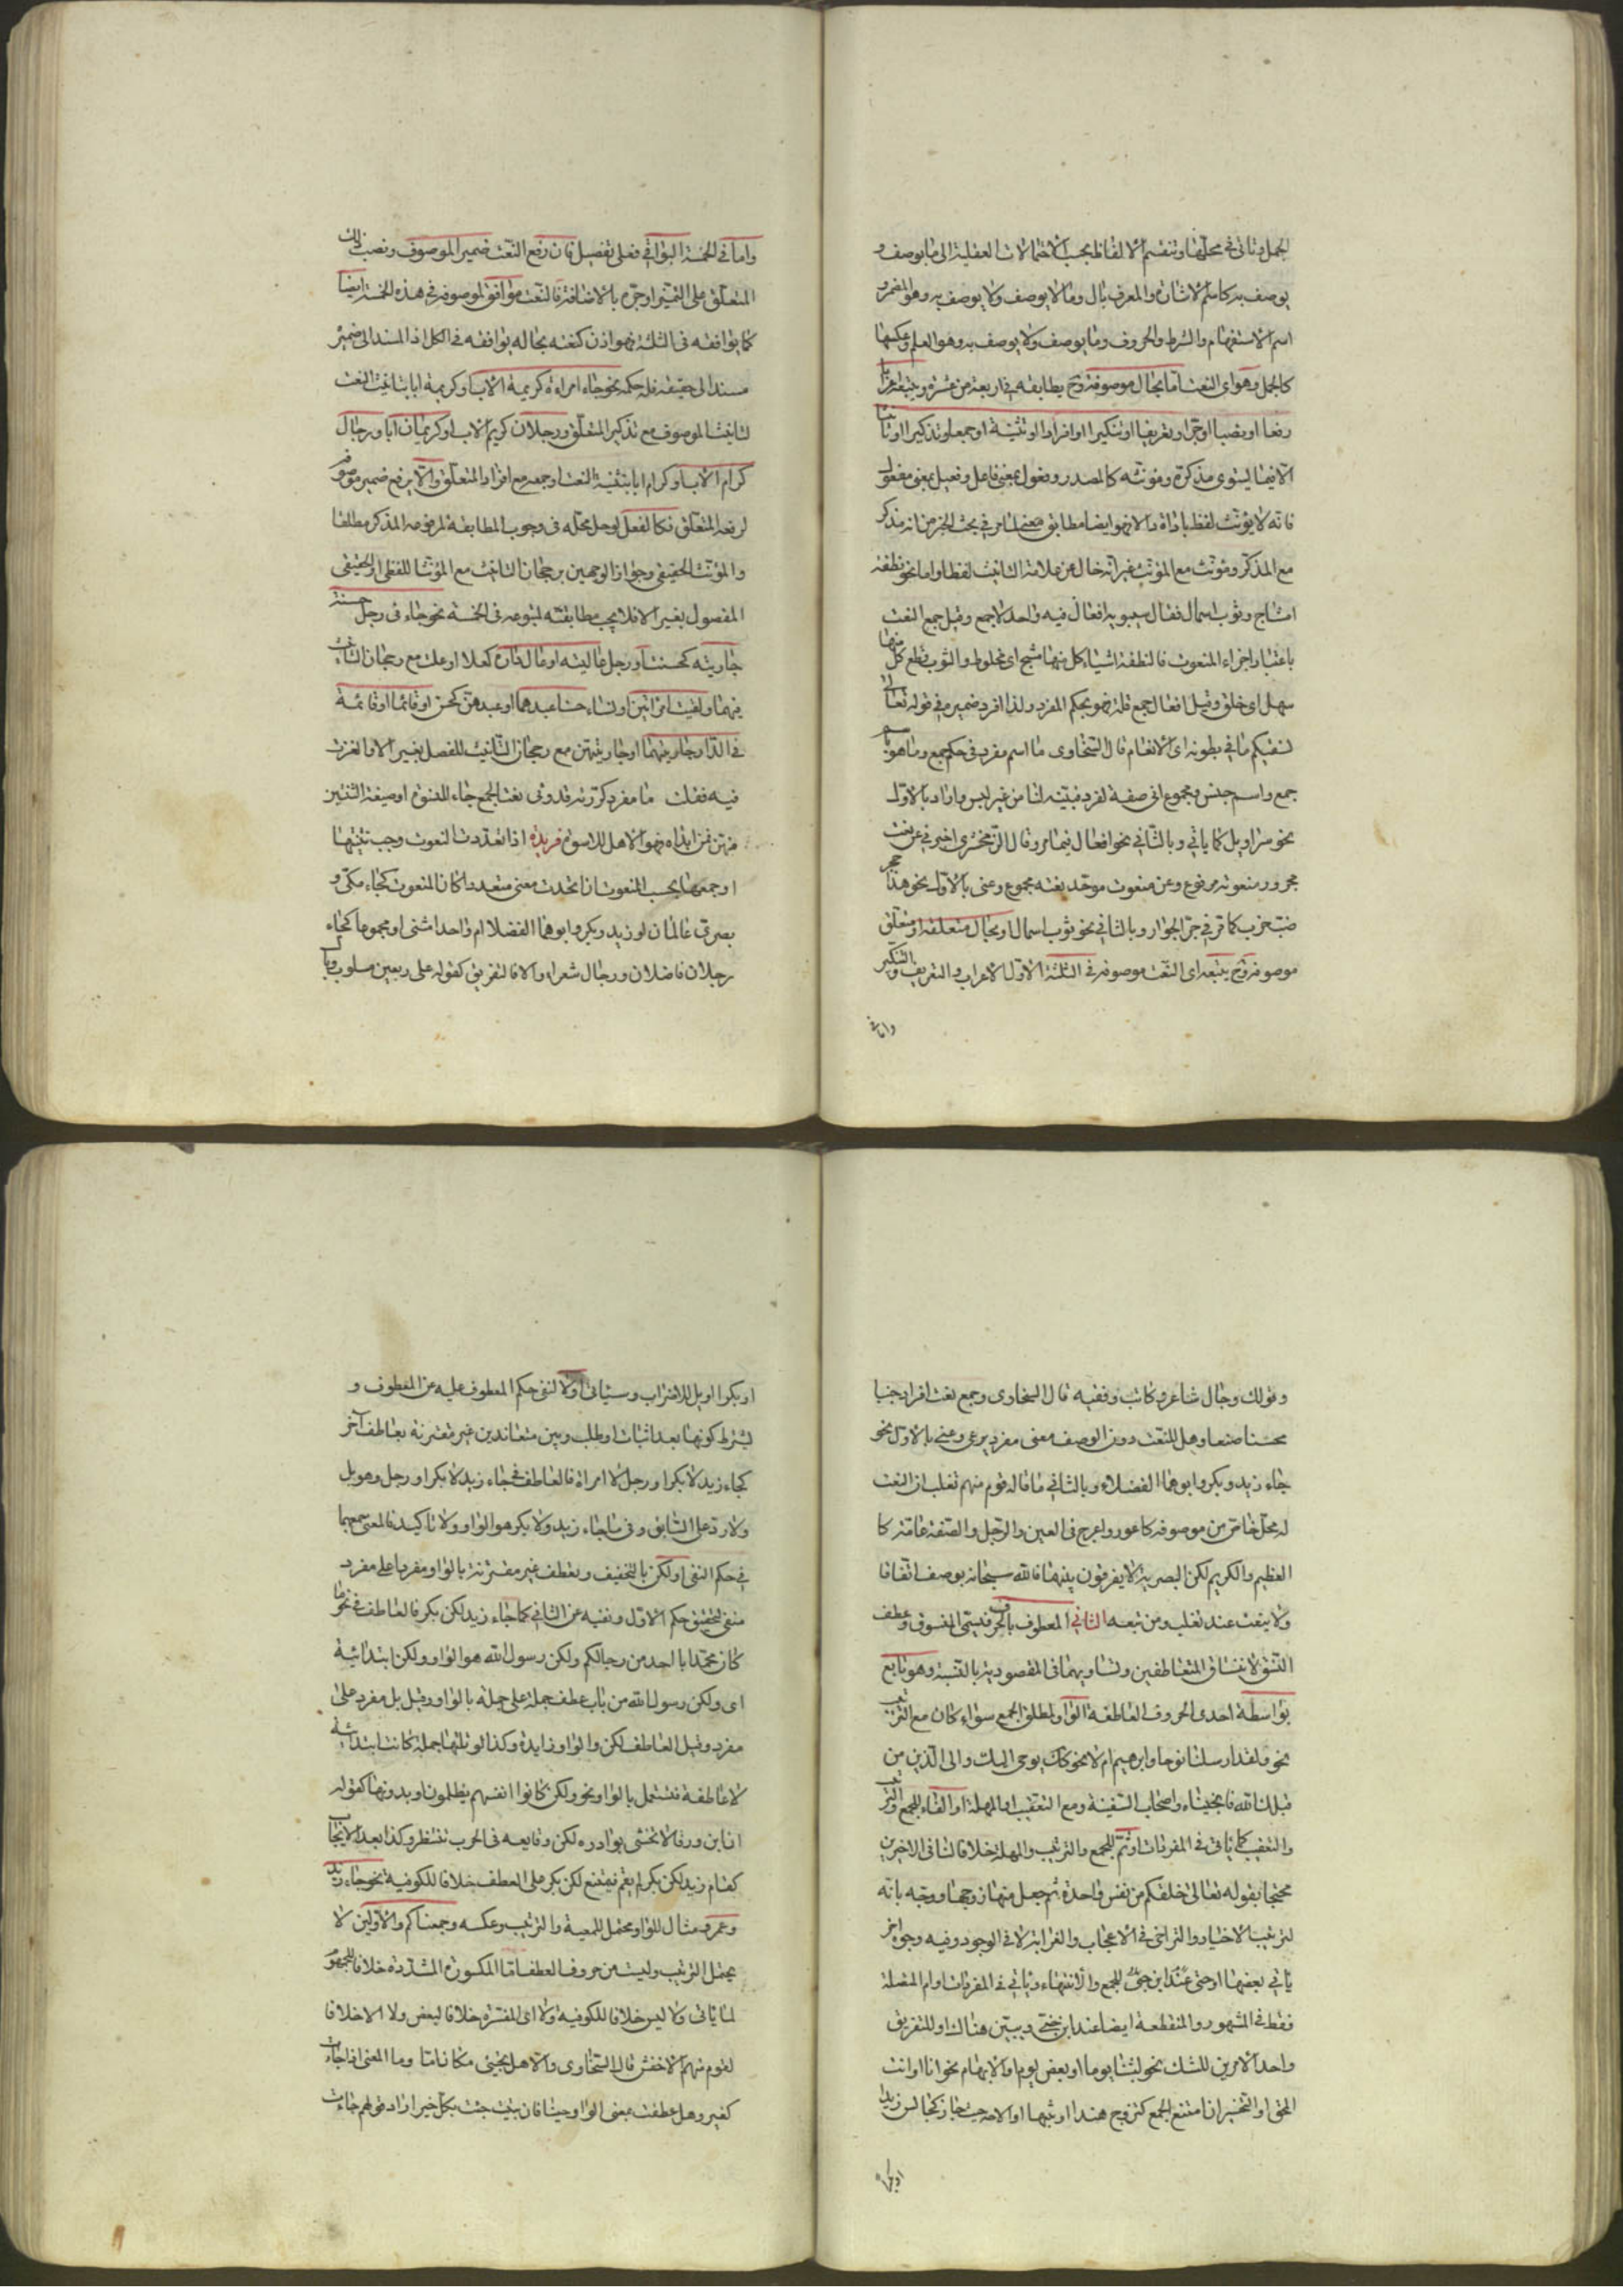 الجمل وتاتى فى محلها وتنقسم الالفاظ بحسب الاحتمالات العقلية الى ما يوصف و
يوصف به كاسم الاشارة والمعرف بال وما لا يوصف ولا يوصف به وهو المضمر و
اسم الاستفهام والشرط والحروف وما يوصف ولا يوصف به وهو العلم وعكسها
كالجمل وهو اى النعت اما بحال موصوفه وح يطابقه فى اربعة من عشرة ويتبعه اعرابا
رفعا او نصبا او جرا وتعريفا او تنكيرا او افرادا او تثنية او جمعا وتذكيرا او تانيثا
الا فيما يستوى مذكره ومؤنثه كالمصدر وفعول بمعنى فاعل وفعيل بمعنى مفعول
فانه لا يؤنث لفظا باداة دالا فهو ايضا مطابق معنى لما مر فى بحث الخبر من انه مذكر
مع المذكر ومؤنث مع المؤنث غير انه خال عن علامة التانيث لفظا واما نحو نطفة
امشاج وثوب اسمال فقال سيبويه افعال فيه واحد لا جمع وقيل جمع النعت
باعتبار اجزاء المنعوت فالنطفة اشياء كل منها مشج اى مخلوط والثوب قطع كل منها
سمل اى خلق وقيل افعال جمع قلة فهو بحكم المفرد ولذا افرد ضميره فى قوله تعالى
نسقيكم مما فى بطونه اى الانعام قال السخاوى ما اسم مفرد فى حكم جمع وما هو باسم
جمع واسم جنس ومجموع اتى صفة لفرد فبينه لنا من غير لبس واراد بالاول
نحو سراويل كما ياتى وبالثانى نحو افعال فيما مر وقال الزمخشرى اخبرنى عن نعت
مجرور منعوته مرفوع وعن منعوت موحد نعته مجموع وعنى بالاول نحو هذا جحر
ضب خرب كما مر فى جر الجوار وبالثانى نحو ثوب اسمال او بحال متعلقه او متعلق
موصوفه وح يتبعه اى النعت موصوفه فى الثلثة الاول الاعراب والتعريف والتنكير
واما فى
واما فى الخمسة البواقى فعلى تفصيل فان رفع النعت ضمير الموصوف ونصب ذلك
المتعلق على التميز او جره بالاضافة فالنعت موافق لموصوفه فى هذه الخمسة ايضا
كما يوافقه فى الثلثة فهو اذن كنعته بحاله يوافقه فى الكل اذ المسند الى ضمير
مسند الى حقيقة فله حكمه نحو جاء امراءة كريمة الاب او كريمة ابا بتانيث النعت
لتانيث الموصوف مع تذكير المتعلق ورجلان كريم الاب او كريمان ابا ورجال
كرام الاب او كرام ابا بتثنية النعت وجمعه مع افراد المتعلق والا يرفع ضمير موصوفه
لرفعه المتعلق فكالفعل لوحل محله فى وجوب المطابقة لمرفوعه المذكر مطلقا
والمؤنث الحقيقى وجواز الوجهين برجحان التانيث مع المؤنث اللفظى او الحقيقى
المفصول بغير الا فلا يجب مطابقته لمتبوعه فى الخمسة نحو جاء فى رجل حسنة
جاريته كحسنت او رجل عالية او عال داره كعلا او علت مع رجحان التانيث
فيهما ولقيت امراتين او نساء حسنا عبدهما او عبدهن كحسن او قائما او قائمة
فى الدار جاريتهما او جاريتهن مع رجحان التانيث للفصل بغير الا والغزت
فيه فقلت ما مفرد كررته قد وفى نعتا لجمع جاء للنسوة او صيغة التثنين
منهن فمن ابداه فهو الاهل للاسوة فريدة اذا تعددت النعوت وجب تثنيتها
او جمعها بحسب المنعوت ان اتحدت معنى متعددا كان المنعوت كجاء مكى و
بصرى عالمان او زيد وبكر وابوهما الفضلا ام واحدا مثنى او مجموعا كجاء
رجلان فاضلان ورجال شعراء والا فالتفريق كقوله على ربعين مسلوب وبال
وقولك وجال شاعر وكاتب وفقيه قال السخاوى وجمع نعت افراد جنيا
محسنا صنعا وهل للنعت دون الوصف معنى مفرد يرعى وعنى بالاول نحو
جاء زيد وبكر وابوهما الفضلاء وبالثانى ما قاله قوم منهم ثعلب ان النعت
له محل خاص من موصوفه كاعور واعرج فى العين والرجل والصفة عامة كا
العظيم والكريم لكن البصرية لا يفرقون بينهما فالله سبحانه يوصف اتفاقا
ولا ينعت عند ثعلب ومن تبعه الثانى المعطوف بالحرف يسمى المنسوق وعطف
النسق لانتساق المتعاطفين وتساويهما فى المقصودية بالنسبة وهو تابع
بواسطة احدى الحروف العاطفة الواو لمطلق الجمع سواء كان مع الترتيب
نحو ولقد ارسلنا نوحا وابرهيم ام لا نحو كذلك يوحى اليك والى الذين من
قبلك الله فانجيناه واصحاب السفينة ومع التعقيب ام المهلة او الفاء للجمع والترتيب
والتعقيب كما ياتى فى المفردات او ثم للجمع والترتيب والمهلة خلافا لنا فى الاخيرين
محتجا بقوله تعالى خلقكم من نفس واحدة ثم جعل منها زوجها ووجه بانه
لترتيب الاخبار والتراخى فى الاعجاب والغرابة لا فى الوجود وفيه وجوه اخر
ياتى بعضها او حتى عند ابن جنى للجمع والانتهاء وتاتى فى المفردات او ام المتصلة
فقط فى المشهور والمنقطعة ايضا عند ابن جنى وسيبين هناك او للتفريق
واحد الامرين للشك نحو لبثنا يوما او بعض يوم والابهام نحو انا او انت
المحق او التخيير ان امتنع الجمع كتزوج هندا او بنتها او الاباحة حيث جاز كجالس زيدا
او بكرا
او بكرا او بل للاضراب وسياتى او لا لنفى حكم المعطوف عليه عن المعطوف و
بشرط كونها بعد اثبات او طلب وبين متعاندين غير مقترنة بعاطف اخر
كجاء زيد لا بكر او رجل لا امراة فالعاطف فى جاء زيد لا بكر او رجل وهو بل
ولا رد على السابق وفى ما جاء زيد ولا بكر هو الواو ولا تاكيد فالمعنى جمعهما
فى حكم النفى او لكن بالتخفيف وتعطف غير مقترنة بالواو مفردا على مفرد
منفى لتحقيق حكم الاول ونفيه عن الثانى كما جاء زيد لكن بكر فالعاطف فى نحو ما
كان محمد ابا احد من رجالكم ولكن رسول الله هو الواو ولكن ابتدائية
اى ولكن رسول الله من باب عطف جملة على جملة بالواو وقيل بل مفرد على
مفرد وقيل العاطف لكن والواو زايدة وكذا لو تلتها جملة كانت ابتدائية
لا عاطفة فتستعمل بالواو نحو ولكن كانوا انفسهم يظلمون وبدونها كقوله
ان ابن ورقا لا تخشى بوادره لكن وقايعه فى الحرب تنتظر وكذا بعد الايجاب
كقام زيد لكن بكر لم يقم فيمتنع لكن بكر على العطف خلافا للكوفية نحو جاء زيد
وعمرو مثال للواو محتمل للمعية والترتيب وعكسه وجمعناكم والاولين لا
يحتمل الترتيب وليست من حروف العطف اما المكسورة المشددة خلافا للجمهور
لما ياتى ولا ليس خلافا للكوفية ولا اى المفسرة خلافا لبعض ولا الا خلافا
لقوم منهم الاخفش قال السخاوى والاهل يجيئى مكان اما وما المعنى اذا جاءت
كغير وهل عطفت بمعنى الواو حينا فان بينت جئت بكل خير اراد قولهم جاءت